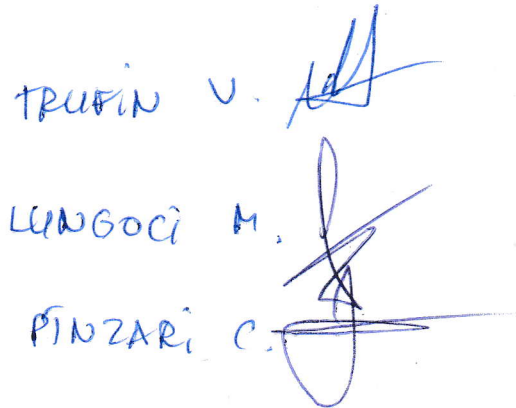 TRUFiN V.
LUNGOCi M.
PÎNZARi C.